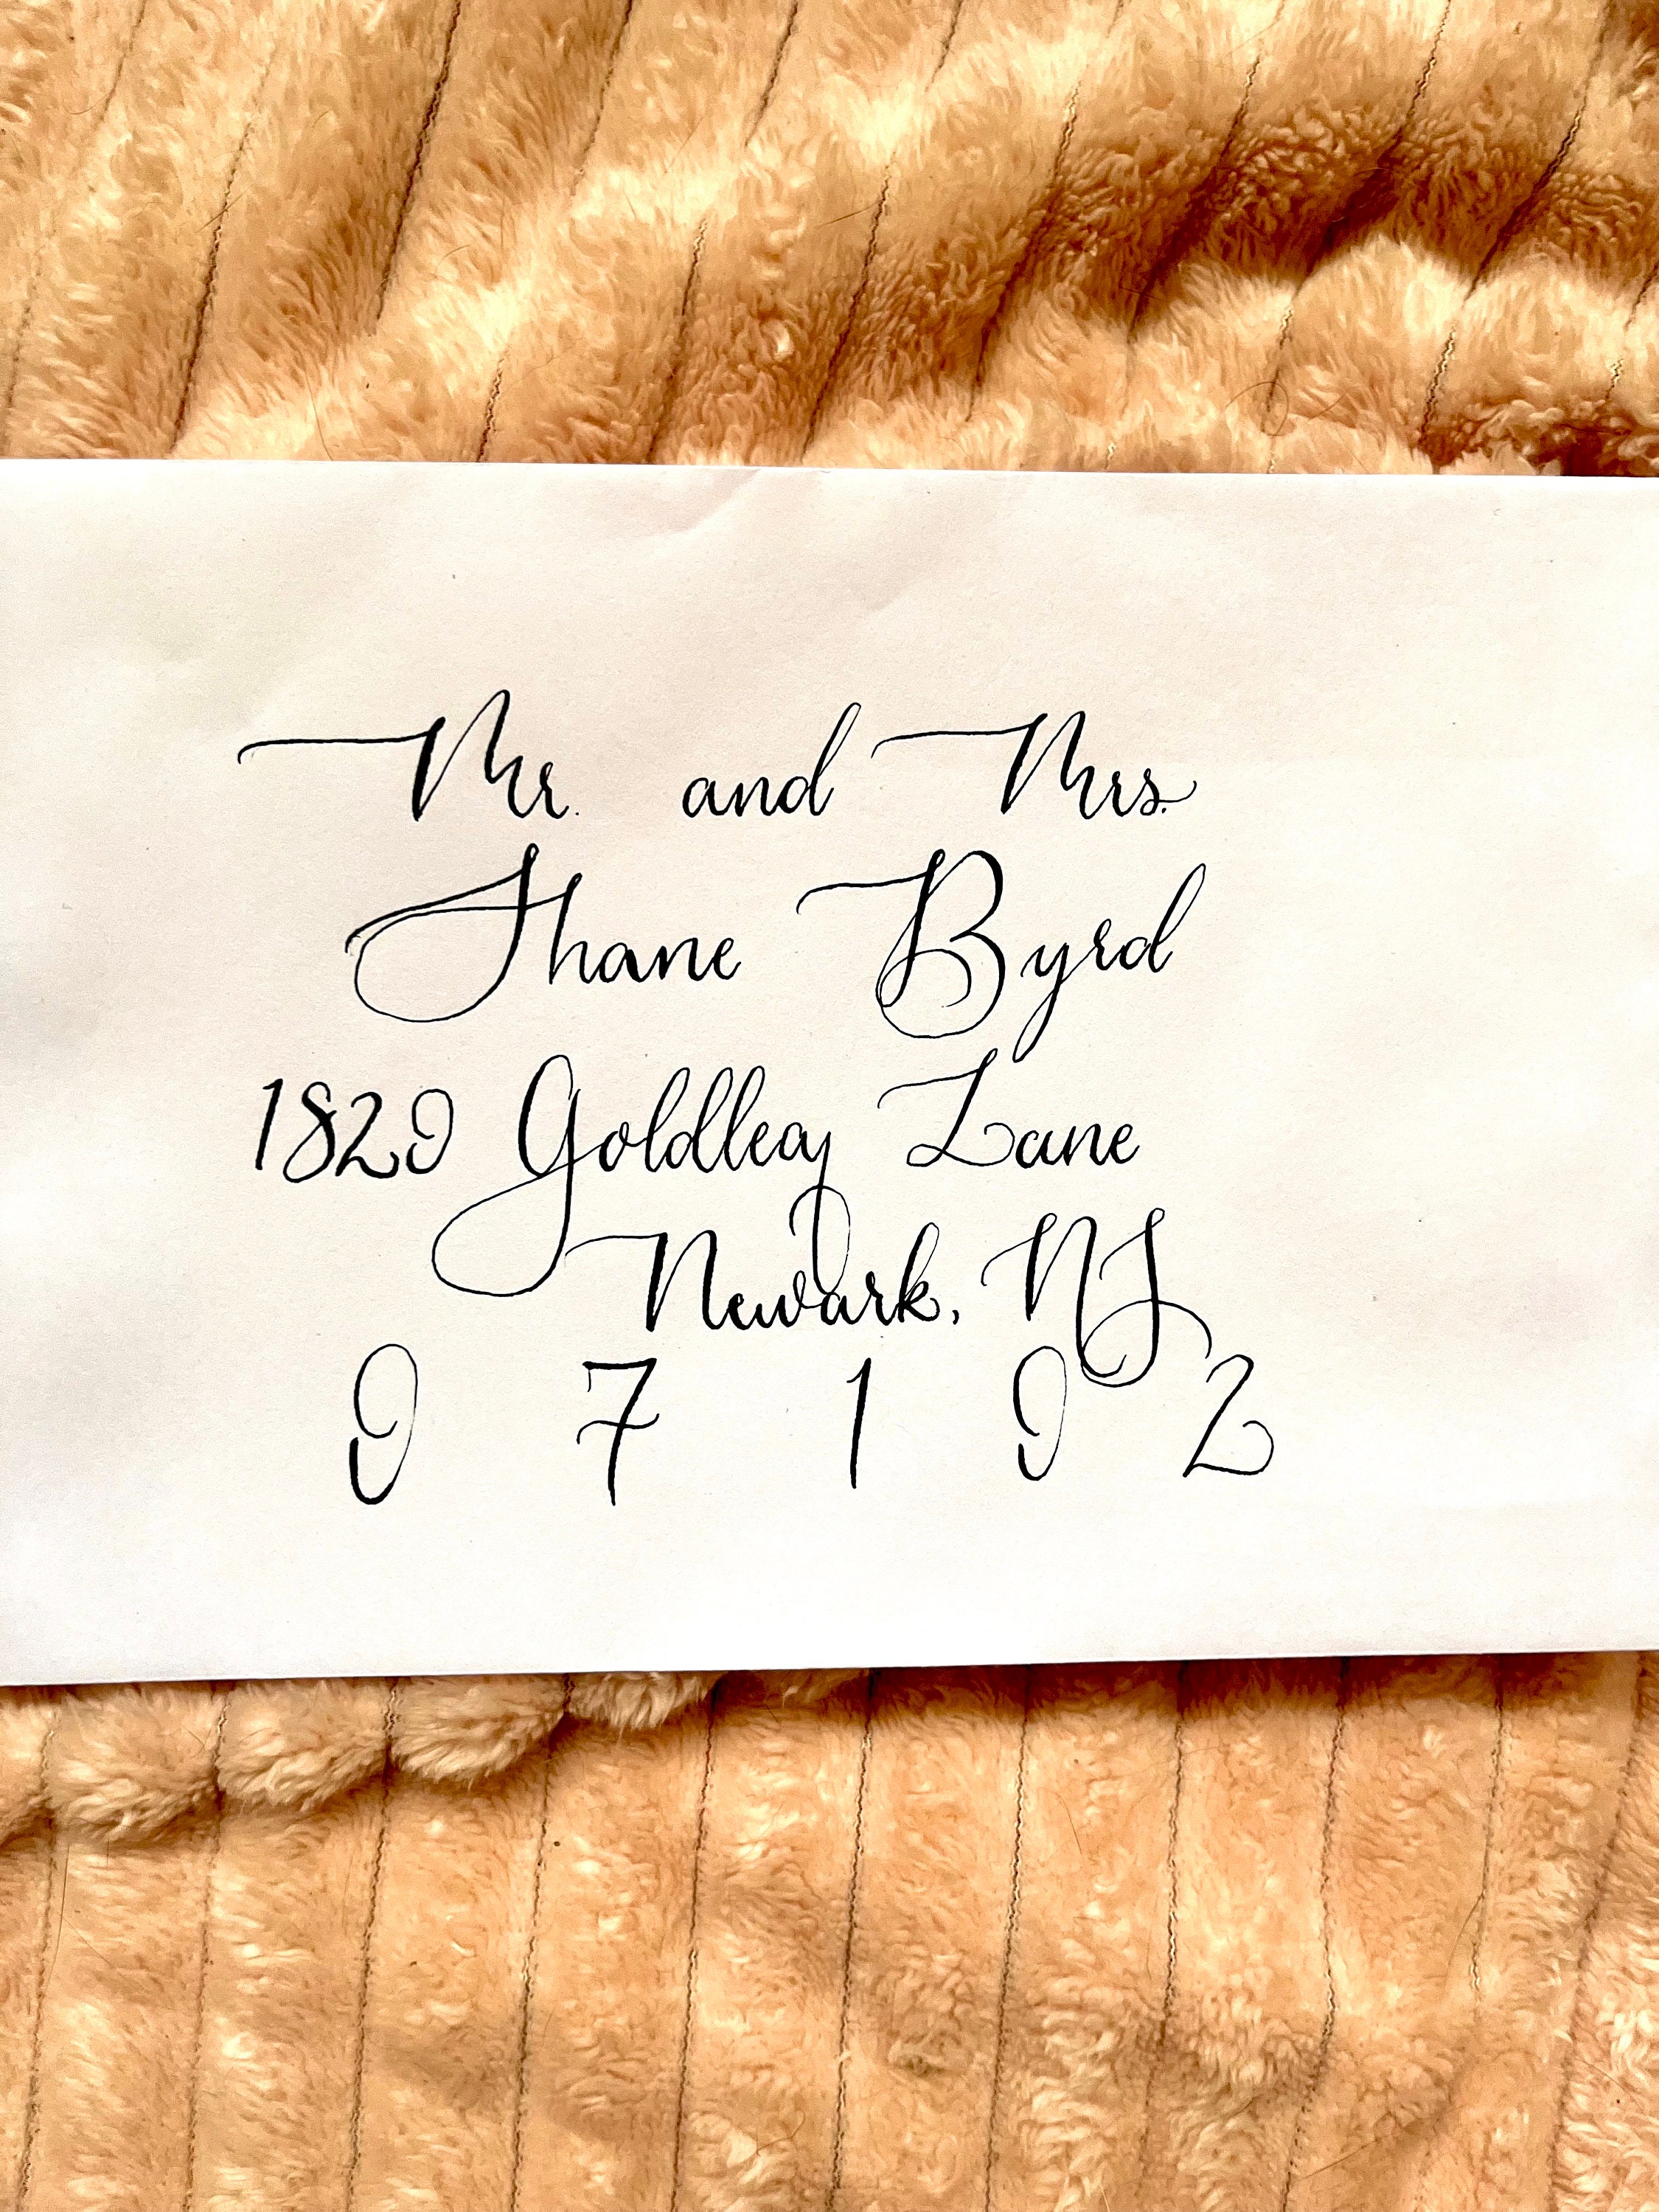 Mr. and Mrs.
Shane Byrd
1820 Goldleaf Lane
Newark, NJ
07102